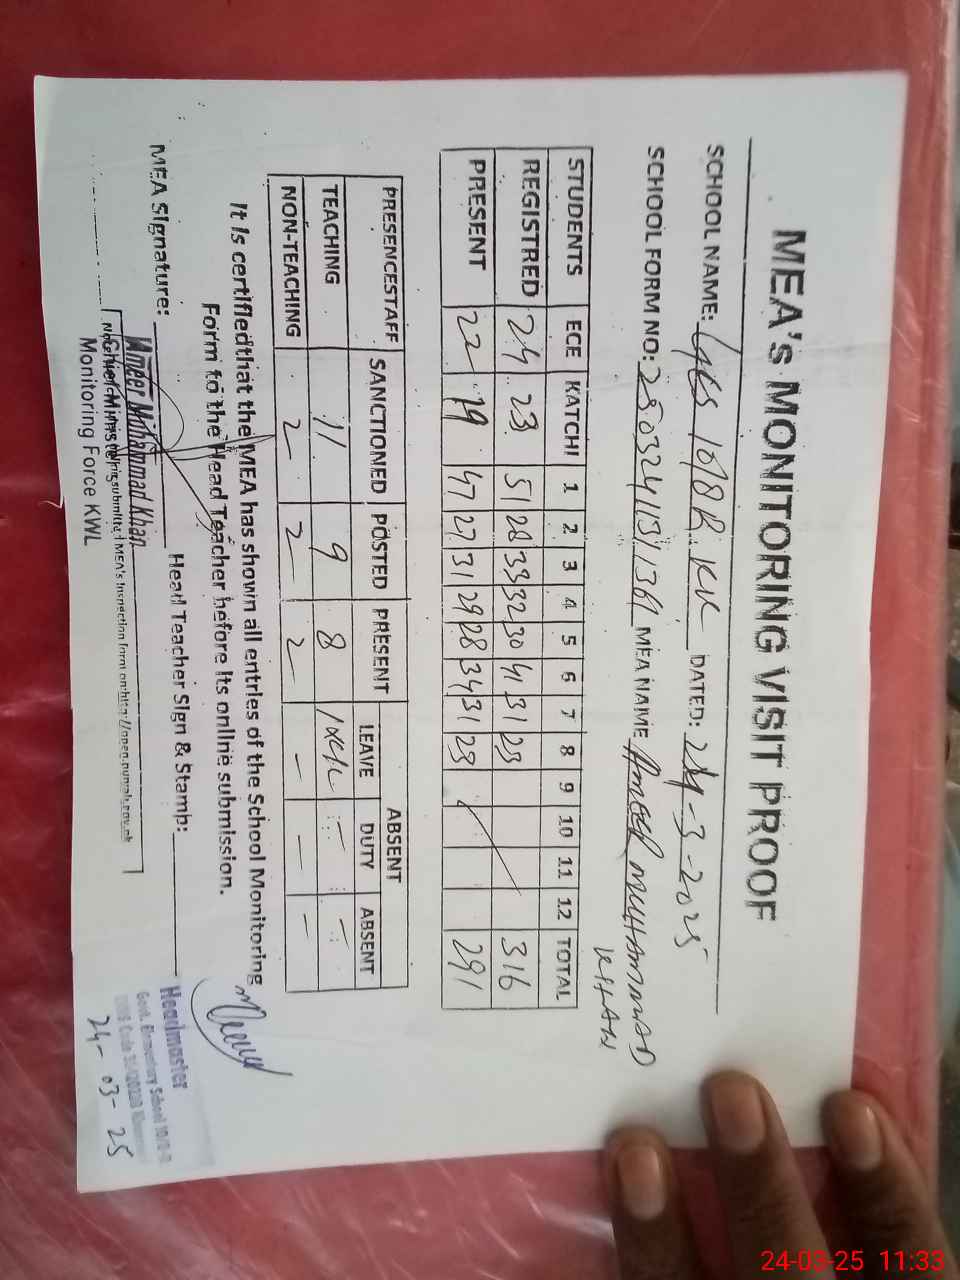 MEA's MONITORING VISIT PROOF
SCHOOL NAME: GES 10/8R KK DATED: 24-3-2025
SCHOOL FORM NO: 25032411311361 MEA NAME AMEER MUHAMMAD KHAN
STUDENTS ECE KATCHI 1 2 3 4 5 6 7 8 9 10 11 12 TOTAL
REGISTRED 24 23 51 28 33 32 30 41 31 23 316
PRESENT 22 19 47 27 31 29 28 34 31 23 291
PRESENCESTAFF SANCTIONED POSTED PRESENT ABSENT
LEAVE DUTY ABSENT
TEACHING 11 9 8 - -
NON-TEACHING 2 2 2 - - -
It is certifiedthat the MEA has shown all entries of the School Monitoring
Form to the Head Teacher before its online submission.
MEA Signature: Head Teacher Sign & Stamp:
Ameer Mohammad Khan
Chief Minister's
Monitoring Force KWL
submitted MEA's Inspection form on:http://open.punjab.gov.pk
Headmaster
Govt. Elementary School 10/8-R
24-03-25
24-03-25 11:33